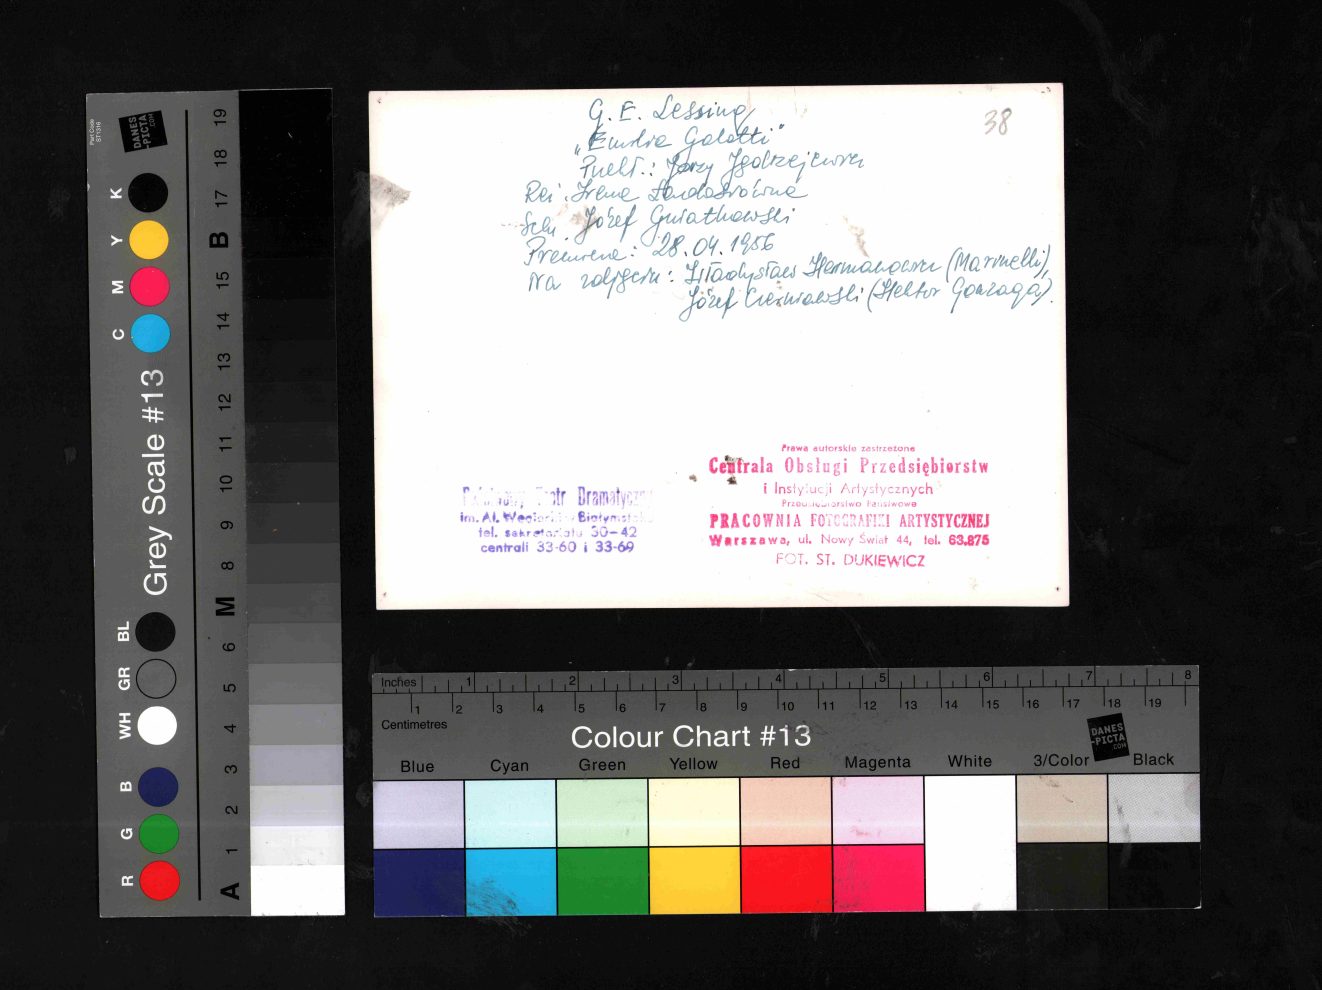 G. E. Lessing
„Emilia Galotti"
38
Jerzy
Reż. Irena
Józef Gwiatkowski
Premiera: 28.04.1956
Na zdjęciu: Władysław (Marinelli),
Józef (Hektor Gonzaga).
Prawa autorskie zastrzeżone
Centrala Obsługi Przedsiębiorstw
i Instytucji Artystycznych
Przedsiębiorstwo Państwowe
PRACOWNIA FOTOGRAFIKI ARTYSTYCZNEJ
Warszawa, ul. Nowy Świat 44, tel. 63.875
FOT. ST. DUKIEWICZ
Teatr Dramatyczny
im. Al. Węgierki
tel. sekretariatu 30-42
centrali 33-60 i 33-69
Part Code
ST1316
DANES
-PICTA
.COM
Grey Scale #13
K
Y
M
C
BL
GR
WH
B
G
R
19
18
17
B
15
14
13
12
11
10
9
8
M
6
5
4
3
2
1
A
Inches 1 2 3 4 5 6 7 8
1 2 3 4 5 6 7 8 9 10 11 12 13 14 15 16 17 18 19
Centimetres
Colour Chart #13
DANES
-PICTA
.COM
Blue Cyan Green Yellow Red Magenta White 3/Color Black